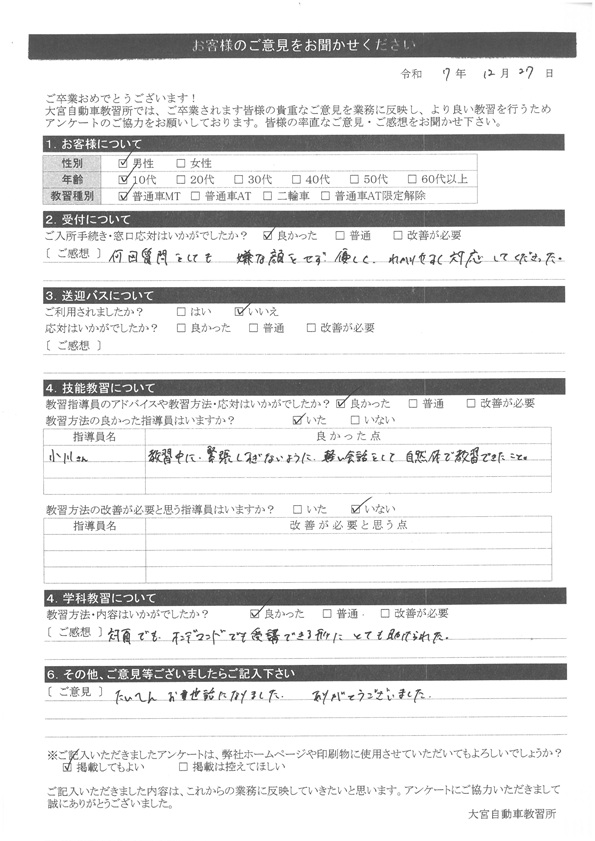 お客様のご意見をお聞かせください
令和 7 年 12 月 27 日
ご卒業おめでとうございます！
大宮自動車教習所では、ご卒業されます皆様の貴重なご意見を業務に反映し、より良い教習を行うため
アンケートのご協力をお願いしております。皆様の率直なご意見・ご感想をお聞かせ下さい。
1. お客様について
性別 ☑男性 □女性
年齢 ☑10代 □20代 □30代 □40代 □50代 □60代以上
教習種別 ☑普通車MT □普通車AT □二輪車 □普通車AT限定解除
2. 受付について
ご入所手続き・窓口応対はいかがでしたか？ ☑良かった □普通 □改善が必要
［ご感想］ 何回質問をしても 嫌な顔をせず 優しく、わかりやすく対応してくださった。
3. 送迎バスについて
ご利用されましたか？ □はい ☑いいえ
応対はいかがでしたか？ □良かった □普通 □改善が必要
［ご感想］
4. 技能教習について
教習指導員のアドバイスや教習方法・応対はいかがでしたか？ ☑良かった □普通 □改善が必要
教習方法の良かった指導員はいますか？ ☑いた □いない
指導員名 良かった点
小川さん 教習中に、緊張しすぎないように、軽い会話をして 自然体で教習できたこと。
教習方法の改善が必要と思う指導員はいますか？ □いた ☑いない
指導員名 改善が必要と思う点
4. 学科教習について
教習方法・内容はいかがでしたか？ ☑良かった □普通 □改善が必要
［ご感想］ 対面でも、オンデマンドでも受講できる所に とても助けられた。
6. その他、ご意見等ございましたらご記入下さい
［ご意見］ たいへん お世話になりました。 ありがとうございました。
※ご記入いただきましたアンケートは、弊社ホームページや印刷物に使用させていただいてもよろしいでしょうか？
☑掲載してもよい □掲載は控えてほしい
ご記入いただきました内容は、これからの業務に反映していきたいと思います。アンケートにご協力いただきまして
誠にありがとうございました。
大宮自動車教習所